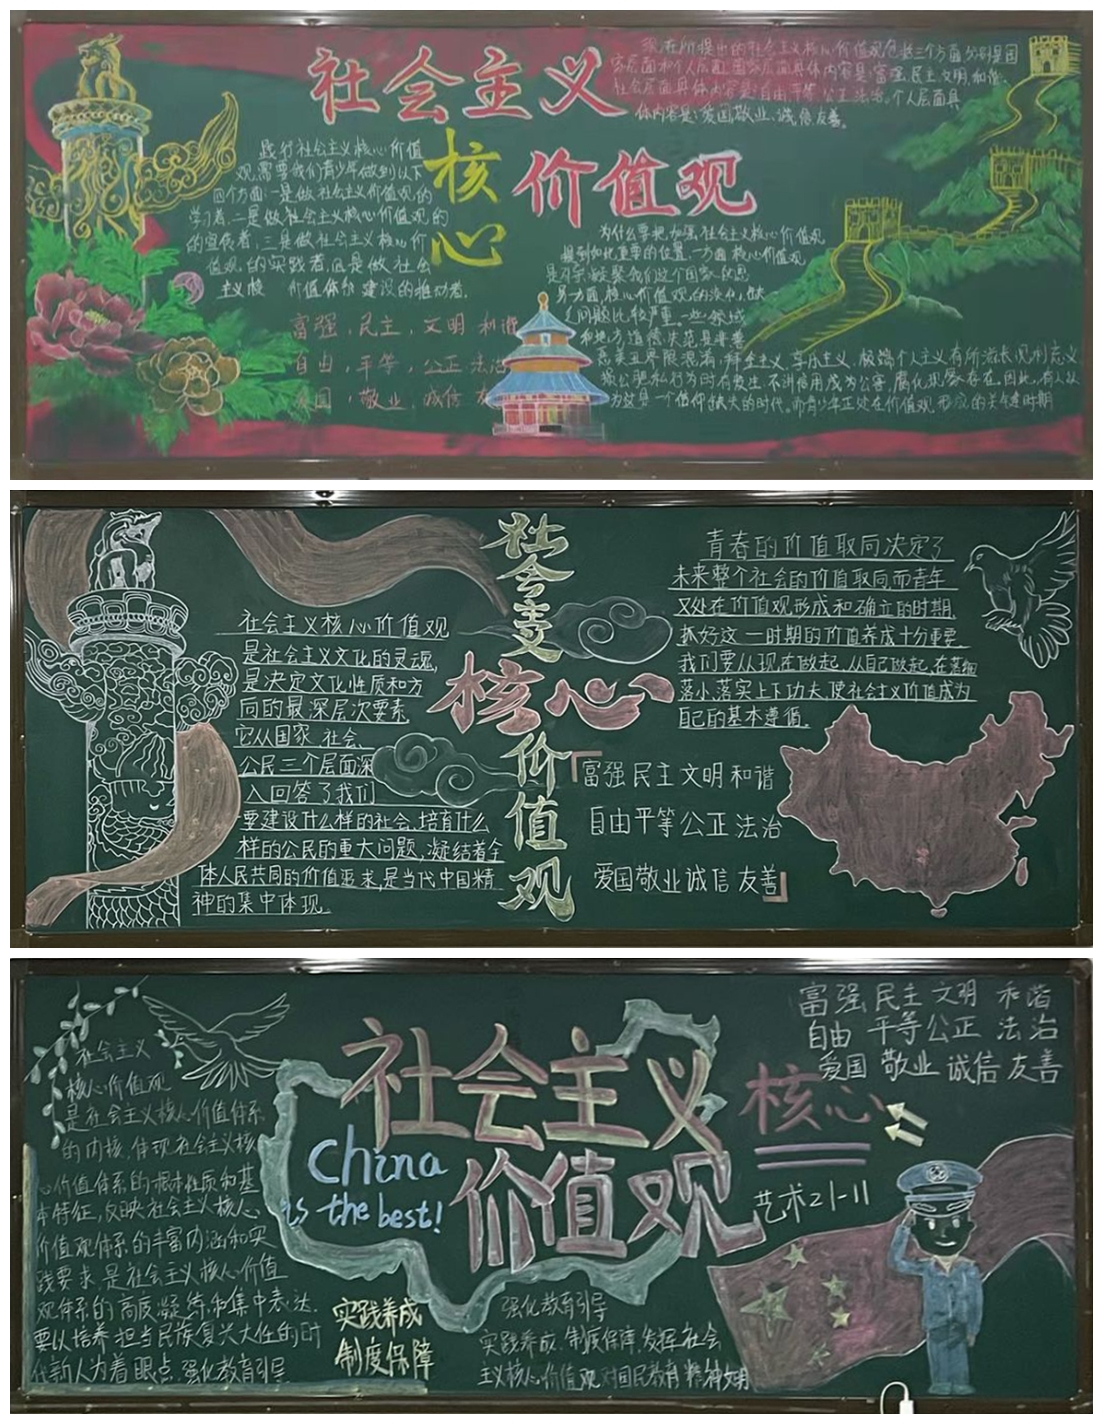 社会主义
核心
价值观
现在所提出的社会主义核心价值观包括三个方面分别是国
家层面和个人层面,国家层面具体内容是:富强、民主、文明、和谐、
社会层面具体内容是:自由、平等、公正、法治。个人层面具
体内容是:爱国、敬业、诚信、友善。
践行社会主义核心价值
观,需要我们青少年做到以下
四个方面:一是做社会主义价值观的
学习者,二是做社会主义核心价值观的
的宣传者,三是做社会主义核心价
值观的实践者,四是做社会
主义核 价值体系建设的推动者.
富强,民主,文明 和谐
自由,平等,公正 法治
爱国,敬业,诚信 友
为什么要把加强社会主义核心价值观
提到如此重要的位置.一方面核心价值观
是
另一方面,核心价值观的缺失
问题比较严重。一些领域
和地方道德失范是非善
恶美丑界限混淆,拜金主义,享乐主义,极端个人主义有所滋长,见利忘义
损公肥私行为时有发生,不讲信用成为公害,腐化现象存在,因此,有人认
为这是一个信仰缺失的时代,而青少年正处在价值观形成的关键时期
社会主义
核心
价值观
社会主义核心价值观
是社会主义文化的灵魂,
是决定文化性质和方
向的最深层次要素.
它从国家、社会、
公民三个层面深
入回答了我们
要建设什么样的社会、培育什么
样的公民的重大问题,凝结着全
体人民共同的价值追求,是当代中国精
神的集中体现.
青春的价值取向决定了
未来整个社会的价值取向而青年
又处在价值观形成和确立的时期,
抓好这一时期的价值养成十分重要.
我们要从现在做起,从自己做起,在落细
落小,落实上下功夫,使社会主义价值成为
自己的基本遵循.
「富强民主文明和谐
自由平等公正法治
爱国敬业诚信友善」
社会主义
核心
价值观
China
is the best!
艺术21-11
富强 民主 文明 和谐
自由 平等 公正 法治
爱国 敬业 诚信 友善
社会主义
核心价值观
是社会主义核心价值体系
的内核,体现社会主义核
心价值体系的根本性质和基
本特征,反映社会主义核心
价值观体系的丰富内涵和实
践要求,是社会主义核心价值
观体系的高度凝练和集中表达.
要以培养担当民族复兴大任的时
代新人为着眼点,强化教育引导
实践养成
制度保障
强化教育引导
实践养成,制度保障,发挥社会
主义核心价值观对国民教育精神文明